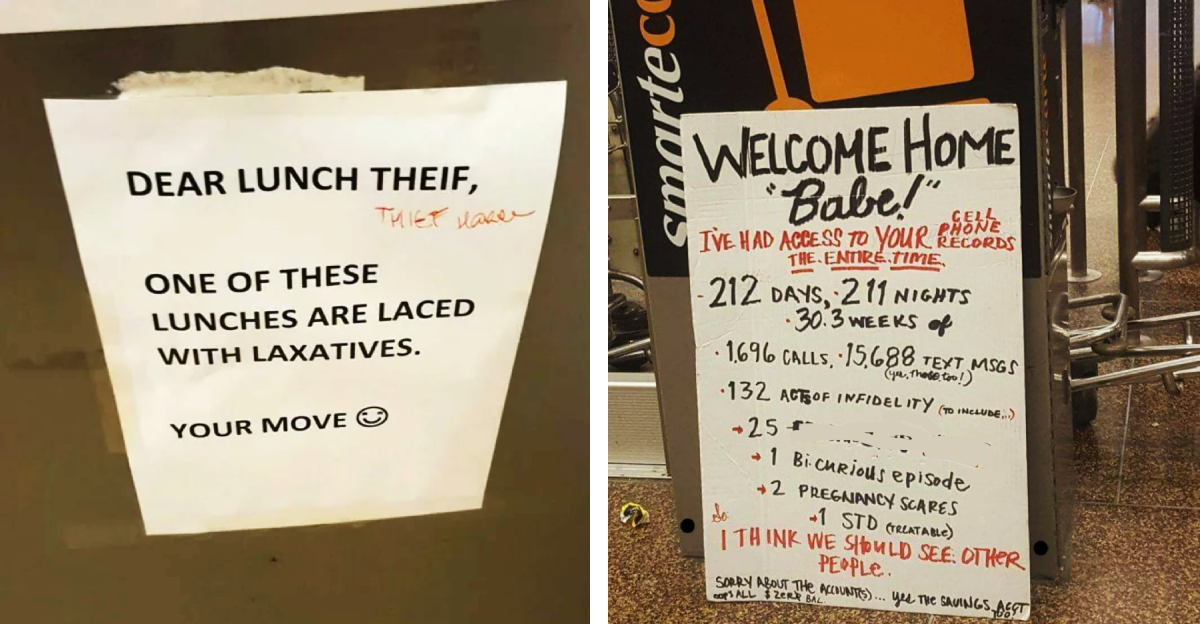 DEAR LUNCH THEIF,
THIEF
ONE OF THESE
LUNCHES ARE LACED
WITH LAXATIVES.
YOUR MOVE ☺
smarteca
WELCOME HOME
"Babe!"
I'VE HAD ACCESS TO YOUR CELL PHONE RECORDS
THE.ENTIRE.TIME.
-212 DAYS, ·211 NIGHTS
·30.3 WEEKS of
·1,696 CALLS, ·15,688 TEXT MSGS
(yes, those too!)
·132 ACTS OF INFIDELITY (TO INCLUDE...)
→25
→1 Bi-curious episode
→2 PREGNANCY SCARES
→1 STD (TREATABLE)
So
I THINK WE SHOULD SEE OTHER
PEOPLE.
SORRY ABOUT THE ACCOUNT(S)... yes THE SAVINGS ACCT
TOO!
oops ALL $ ZERO BAL.